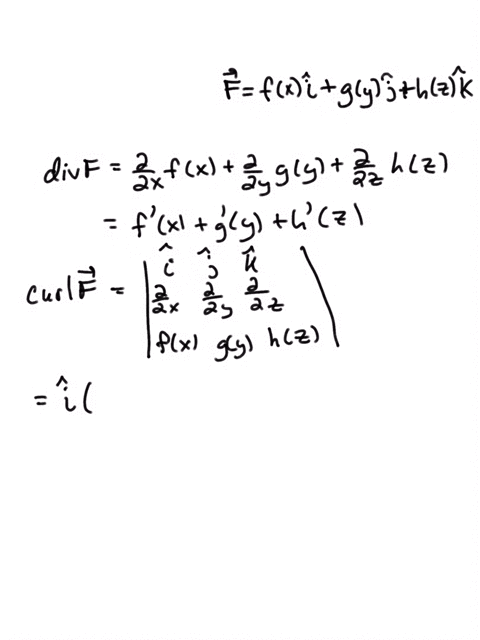 F⃗ = f(x)î + g(y)ĵ + h(z)k̂
divF = ∂/∂x f(x) + ∂/∂y g(y) + ∂/∂z h(z)
= f'(x) + g'(y) + h'(z)
î ĵ k̂
curlF⃗ = | ∂/∂x ∂/∂y ∂/∂z |
f(x) g(y) h(z)
= î (